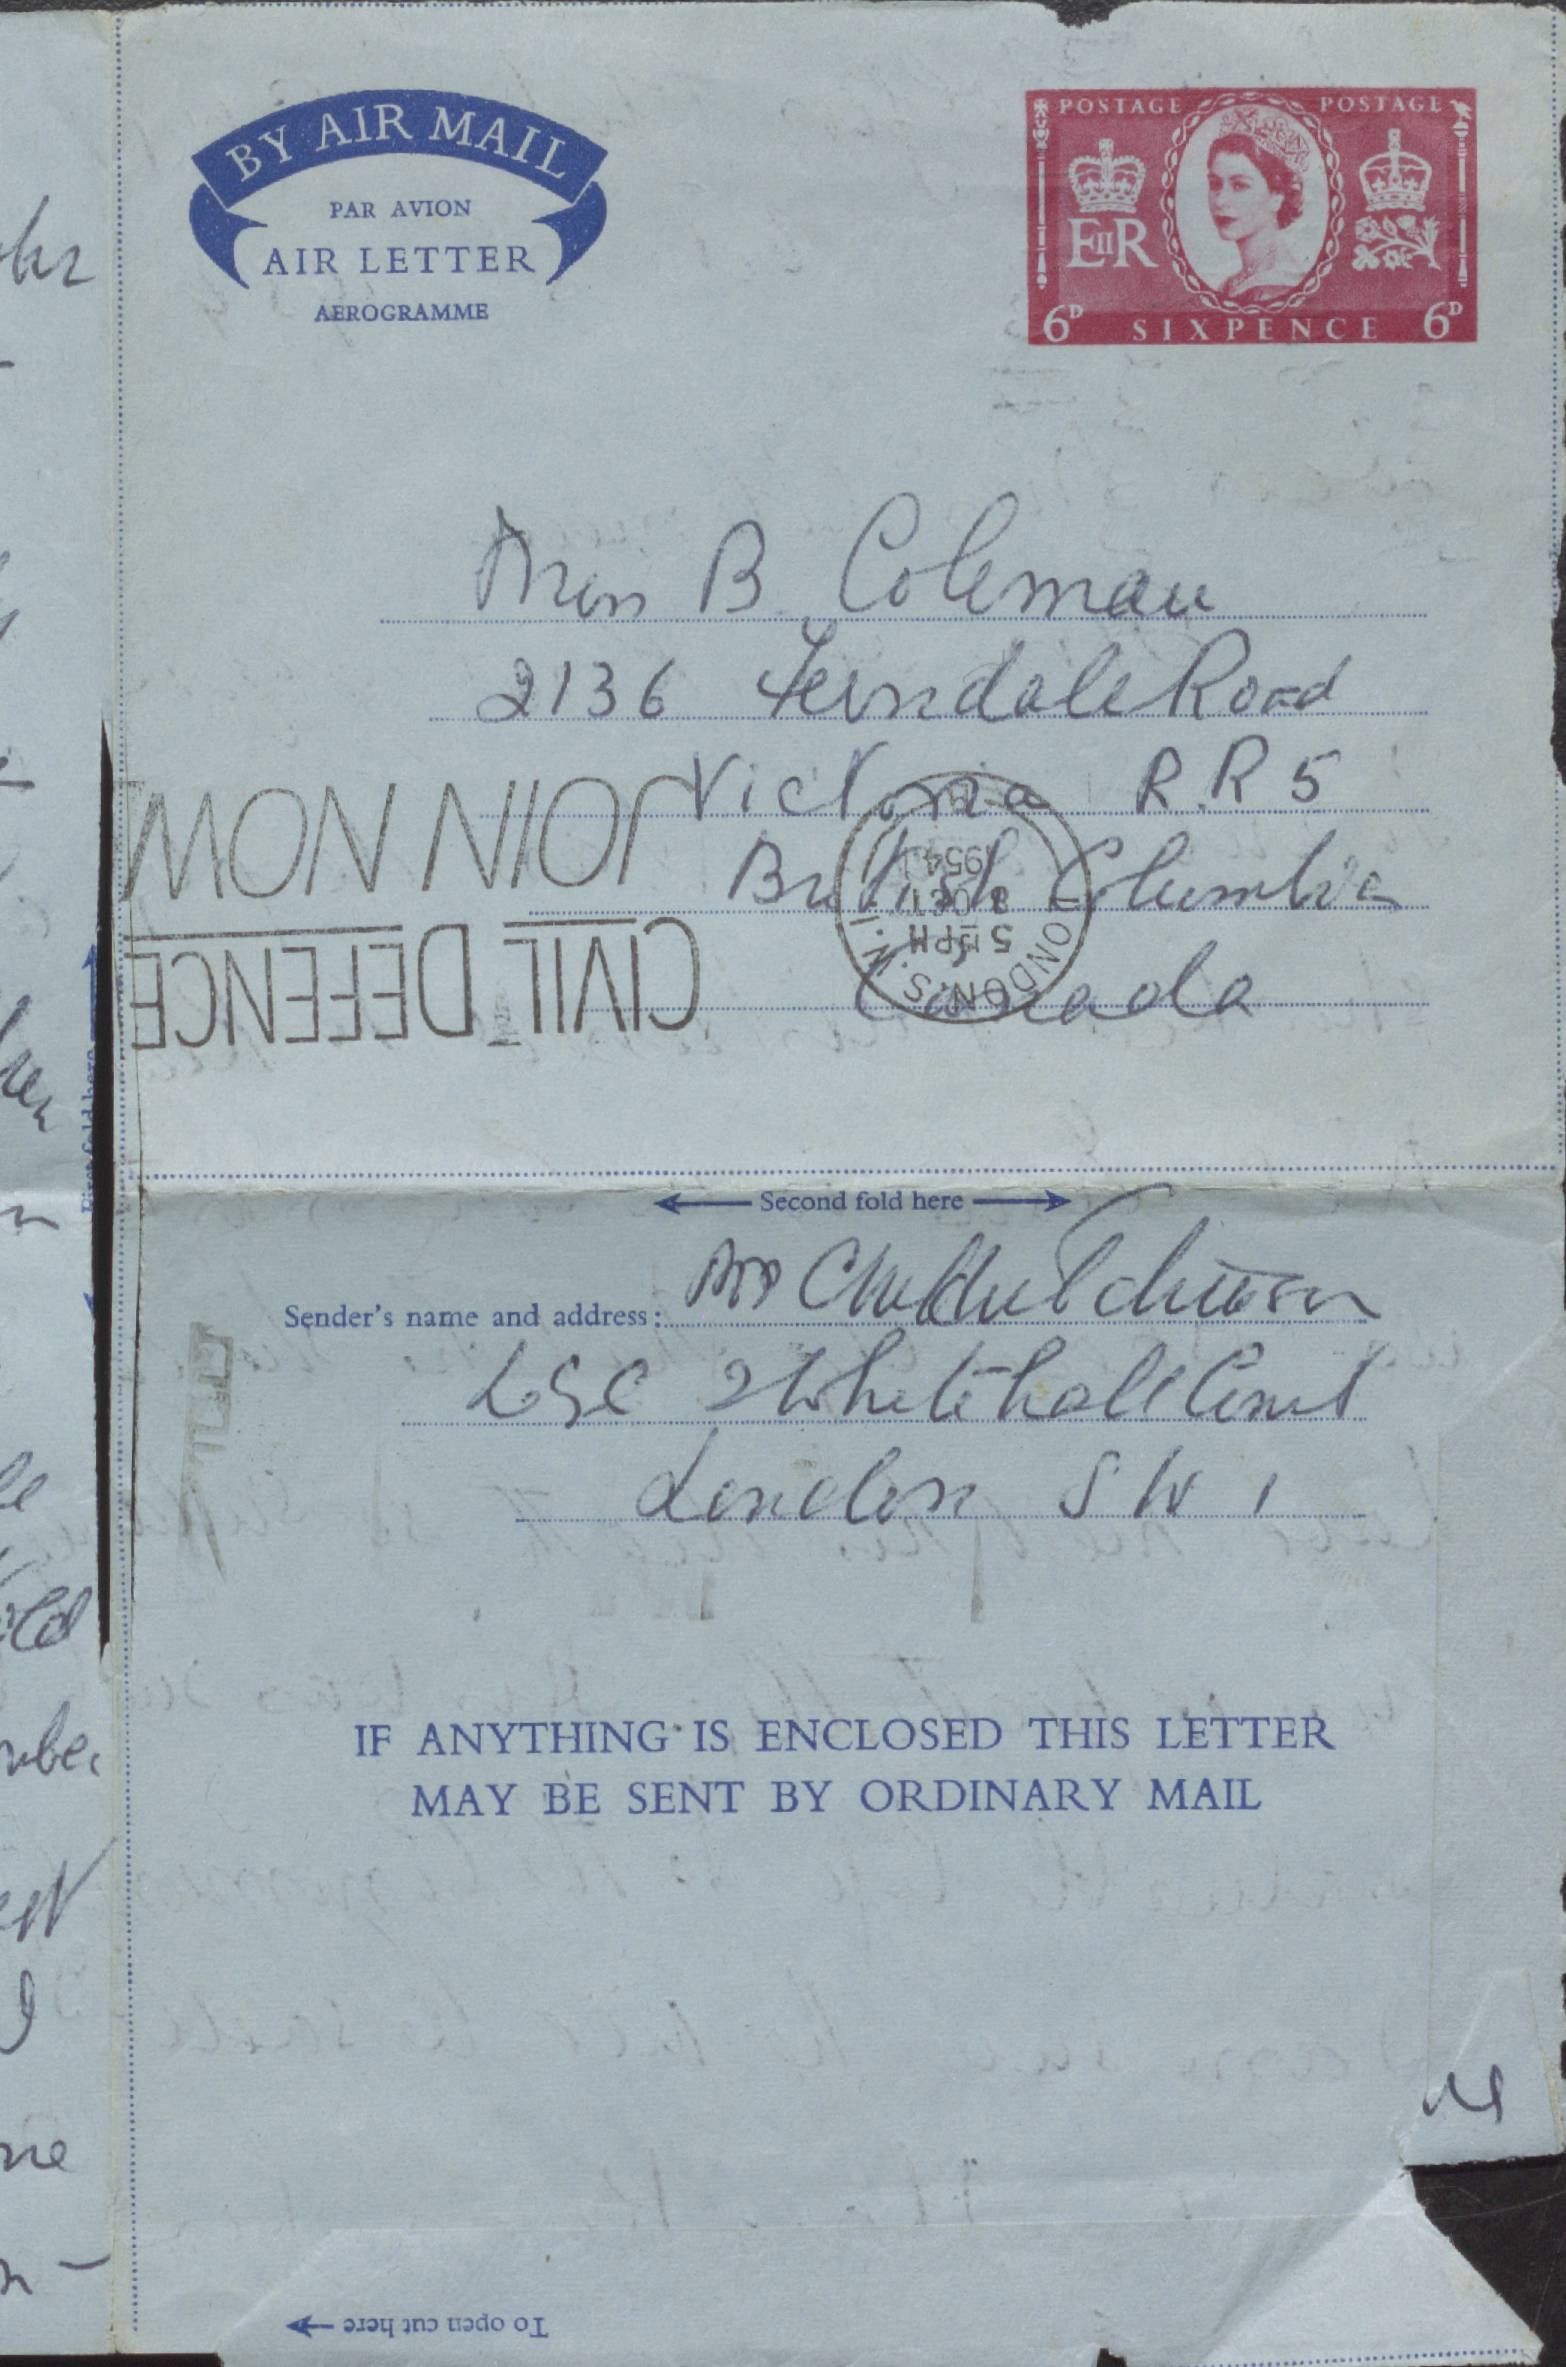 BY AIR MAIL
PAR AVION
AIR LETTER
AEROGRAMME
POSTAGE POSTAGE
EIIR
6D SIXPENCE 6D
Miss B. Coleman
2136 Ferndale Road
Victoria R.R 5
British Columbia
Canada
JOIN NOW
CIVIL DEFENCE
LONDON. S.W.1
5 PM
OCT
1954
First fold here
Second fold here
Sender's name and address: Hutchison
LSC 2 Whitehall Court
London S W 1
IF ANYTHING IS ENCLOSED THIS LETTER
MAY BE SENT BY ORDINARY MAIL
To open cut here